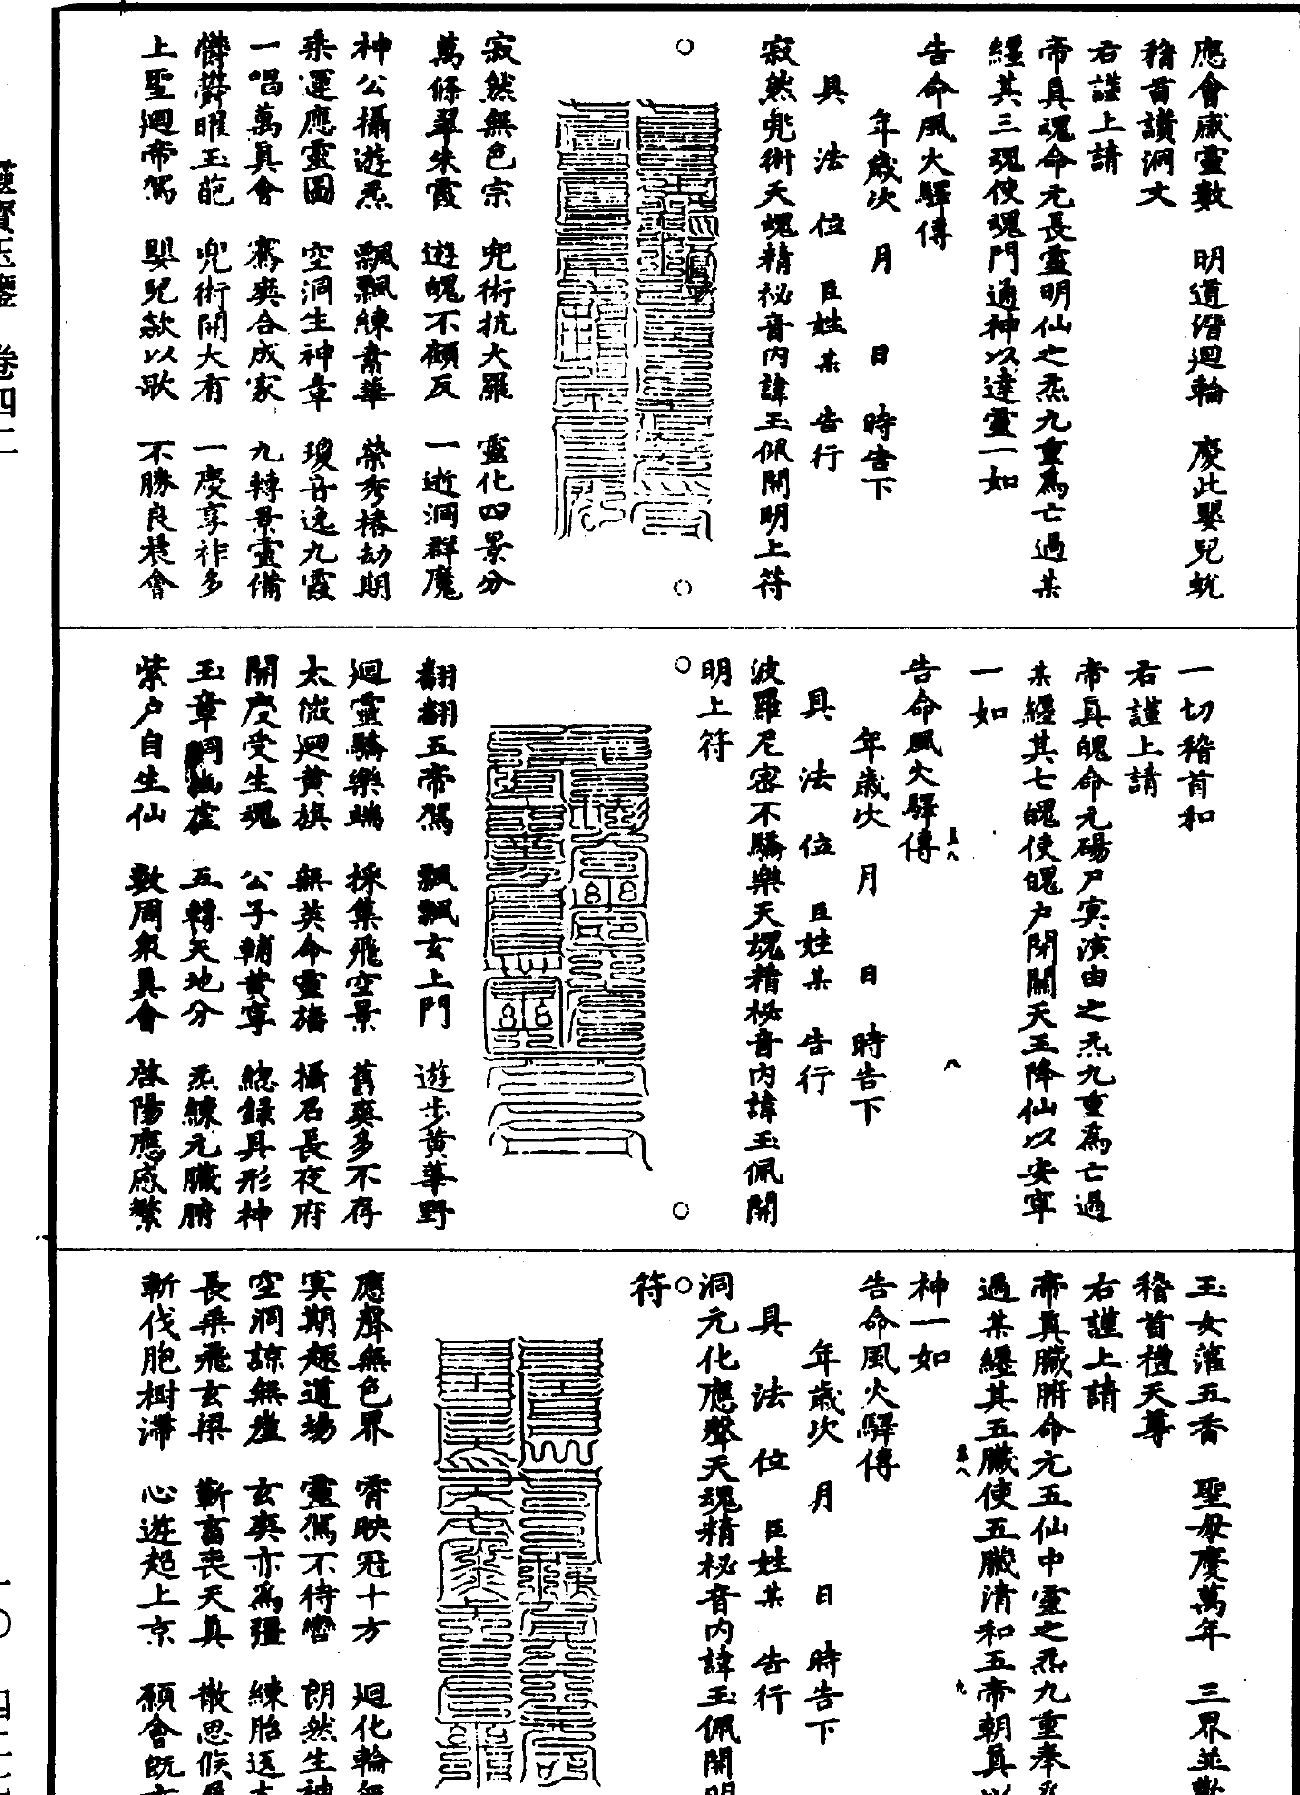 應會感靈數　明道潛迴輪　慶此嬰兒蛻
稽首讚洞文
右謹上請
帝真魂命元長靈明仙之炁九重為亡過某
經其三魂使魂門通神以達靈一如
告命風火驛傳
年歲次　月　日　時告下
具　法　位　臣姓某　告行
寂然兜術天魂精秘音內諱玉佩開明上符
○
○
寂然無色宗　兜術抗大羅　靈化四景分
萬條翠朱霞　遊魄不顧反　一逝洞群魔
神公攝遊炁　飄飄練素華　榮秀椿劫期
乘運應靈圖　空洞生神章　瓊音逸九霞
一唱萬真會　騫爽合成家　九轉景靈備
鬱曜玉葩　兜術開大有　一慶享祚多
上聖迴帝駕　嬰兒歘以歌　不勝良晨會
一切稽首和
右謹上請
帝真魄命元碭尸冥演由之炁九重為亡過
某經其七魄使魄戶閉關天王降仙以安寧
一如
告命風火驛傳
年歲次　月　日　時告下
具　法　位　臣姓某　告行
波羅尼密不驕樂天魂精秘音內諱玉佩開
明上符
○
○
翻翻五帝駕　飄飄玄上門　遊步黃華野
迴靈驕樂端　採集飛空景　舊爽多不存
太微迴黃旗　無英命靈旛　攝召長夜府
開度受生魂　公子輔黃寧　總錄具形神
玉章洞幽　五轉天地分　炁練元臟腑
紫戶自生仙　數周眾真會　啓陽應感繁
玉女蕩五香　聖母慶萬年　三界並歡
稽首禮天尊
右謹上請
帝真臟腑命元五仙中靈之炁九重奉
過某經其五臟使五臟清和五帝朝真以
神一如
告命風火驛傳
年歲次　月　日　時告下
具　法　位　臣姓某　告行
洞元化應聲天魂精秘音內諱玉佩開明
○
符
應聲無色界　霄映冠十方　迴化輪無
冥期趣道場　靈駕不待轡　朗然生神
空洞諒無崖　玄爽亦為疆　練胎返
長乘飛玄梁　蘄畜喪天真　散思候
斬伐胞樹滯　心遊超上京　願會既
靈寶玉鑒　卷四二